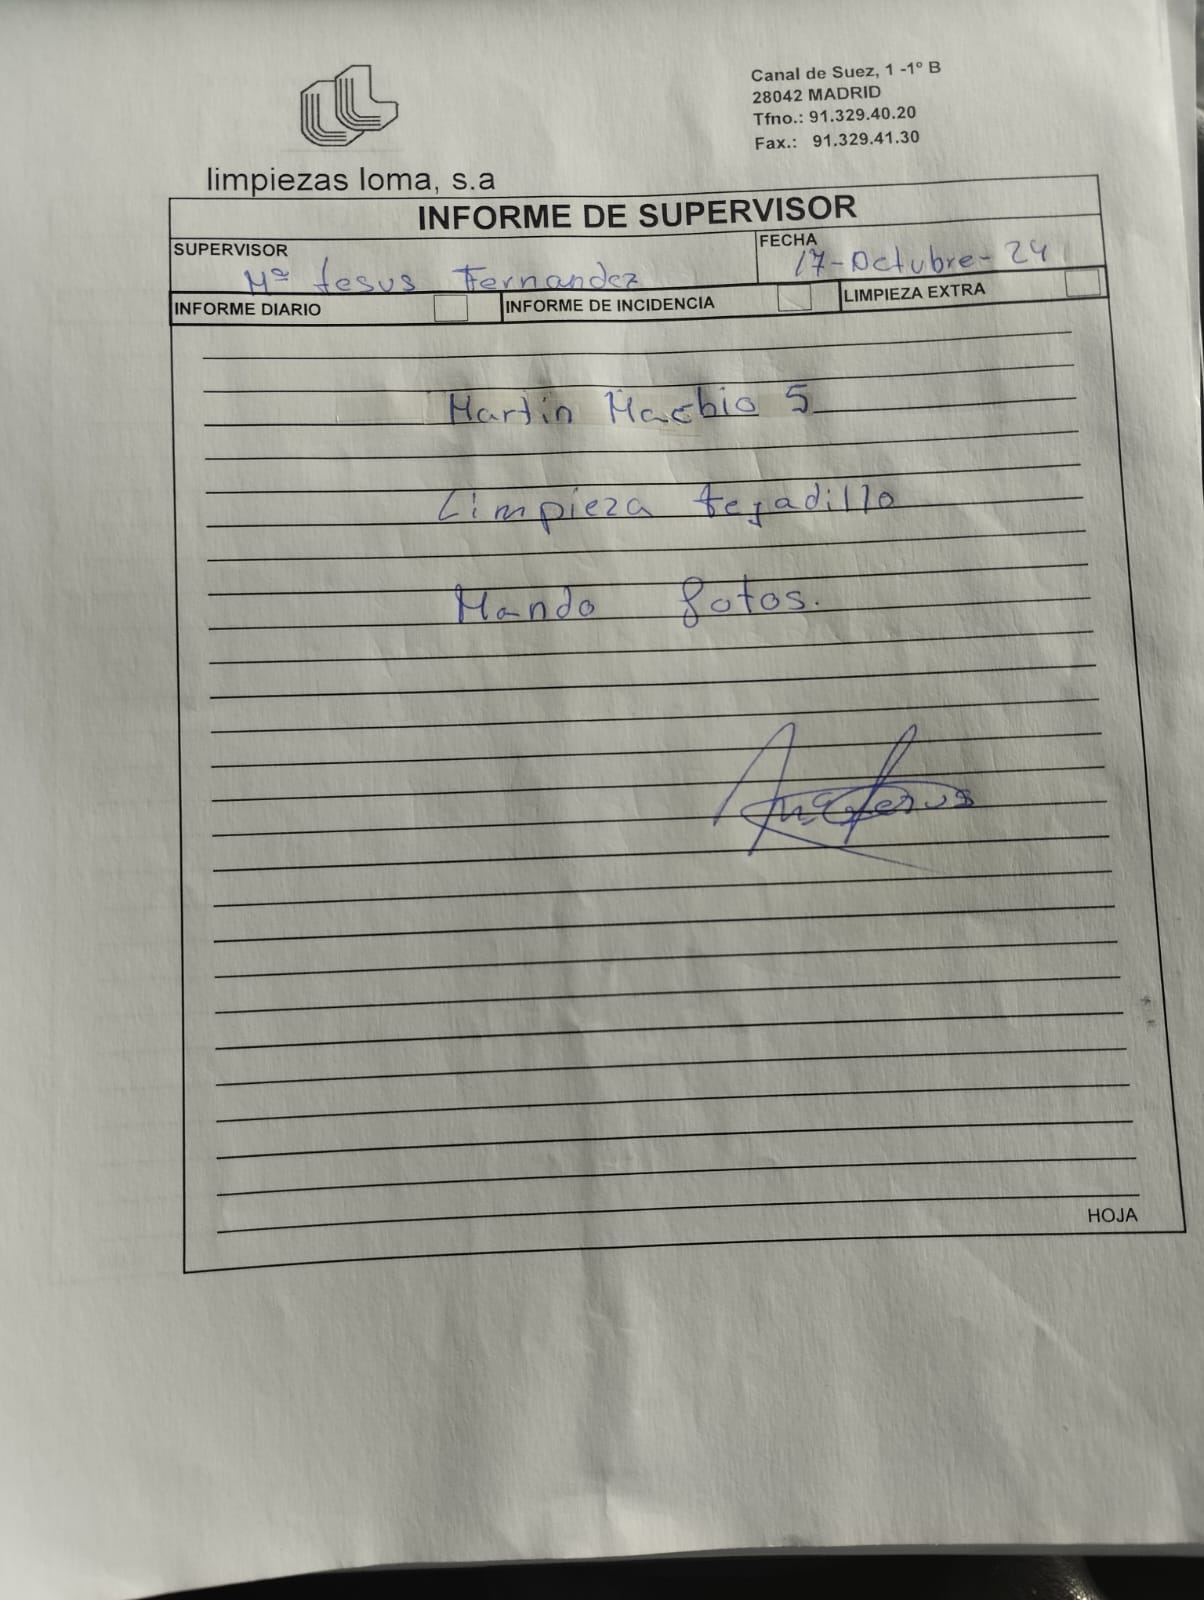 Canal de Suez, 1 -1º B
28042 MADRID
Tfno.: 91.329.40.20
Fax.: 91.329.41.30
limpiezas loma, s.a
INFORME DE SUPERVISOR
SUPERVISOR
Mª Jesus Fernandez
FECHA
17-Octubre-24
INFORME DIARIO
INFORME DE INCIDENCIA
LIMPIEZA EXTRA
Martin Machio 5
Limpieza tejadillo
Mando fotos.
Mª Jesus
HOJA